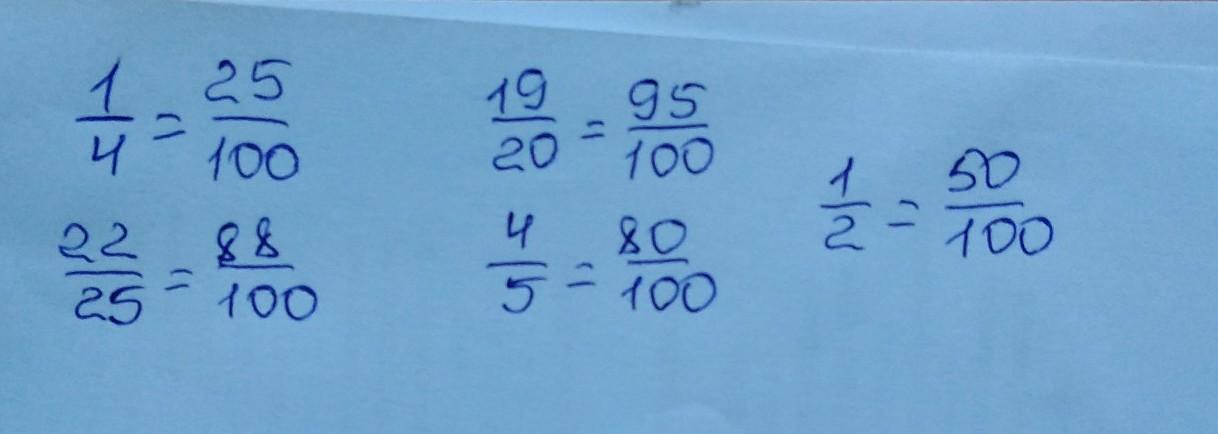 1/4 = 25/100
19/20 = 95/100
1/2 = 50/100
22/25 = 88/100
4/5 = 80/100